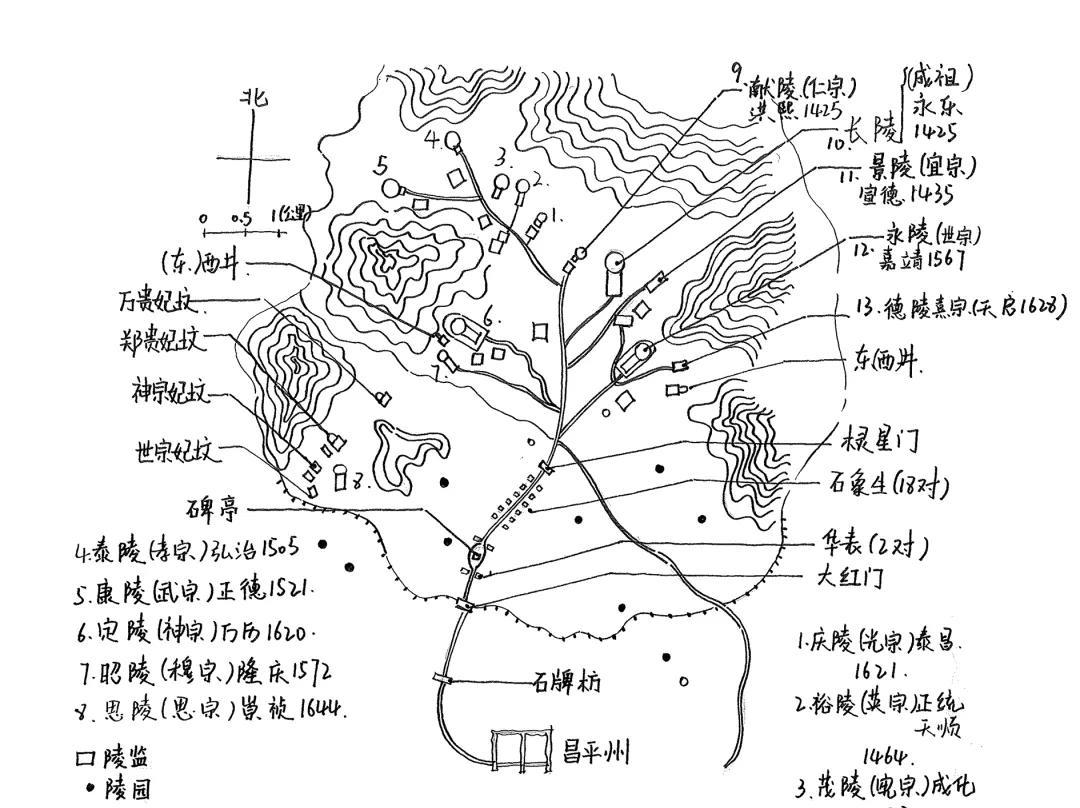 北
0 0.5 1(公里)
(东)西井
万贵妃坟
郑贵妃坟
神宗妃坟
世宗妃坟
碑亭
4.泰陵(孝宗)弘治1505
5.康陵(武宗)正德1521.
6.定陵(神宗)万历1620.
7.昭陵(穆宗)隆庆1572
8.思陵(思宗)崇祯1644.
□陵监
●陵园
4.
5
3.
2.
1.
6.
7.
8.
9.献陵(仁宗)
洪熙1425
10.长陵(成祖)
永乐
1425
11.景陵(宣宗)
宣德.1435
12.永陵(世宗)
嘉靖1567
13.德陵熹宗(天启1628)
东西井.
棂星门
石象生(18对)
华表(2对)
大红门
石牌枋
昌平州
1.庆陵(光宗)泰昌.
1621.
2.裕陵(英宗)正统
天顺
1464.
3.茂陵(宪宗)成化